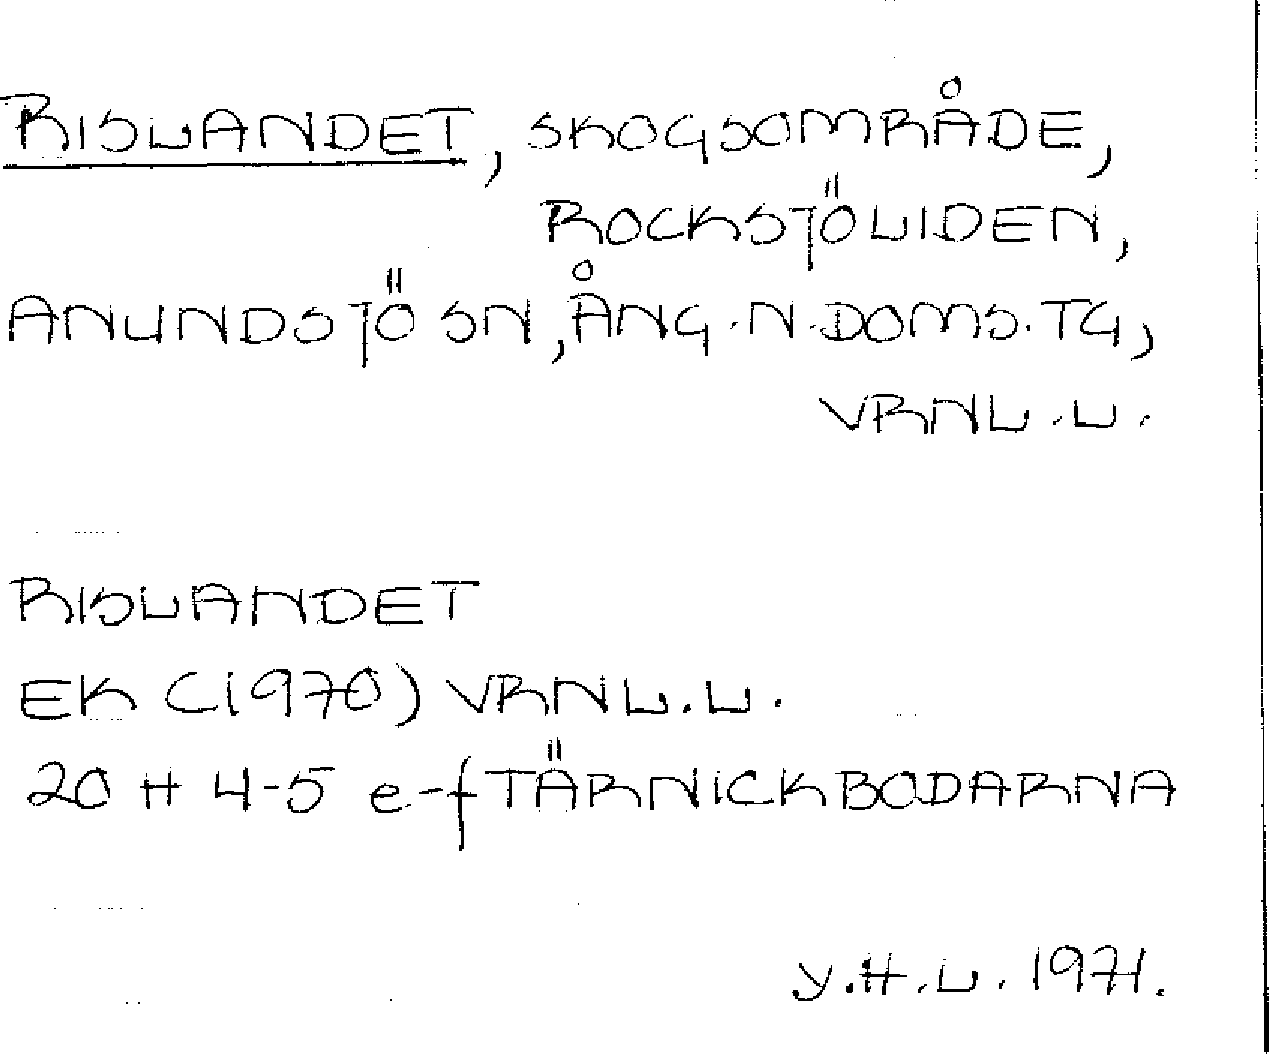 RISLANDET, SKOGSOMRÅDE,
ROCKSJÖLIDEN,
ANUNDSJÖ SN, ÅNG. N. DOMS. TG,
VRNL. L.
RISLANDET
EK (1970) VRNL. L.
20 H 4-5 e-f TÄRNICKBODARNA
Y.H.L. 1971.